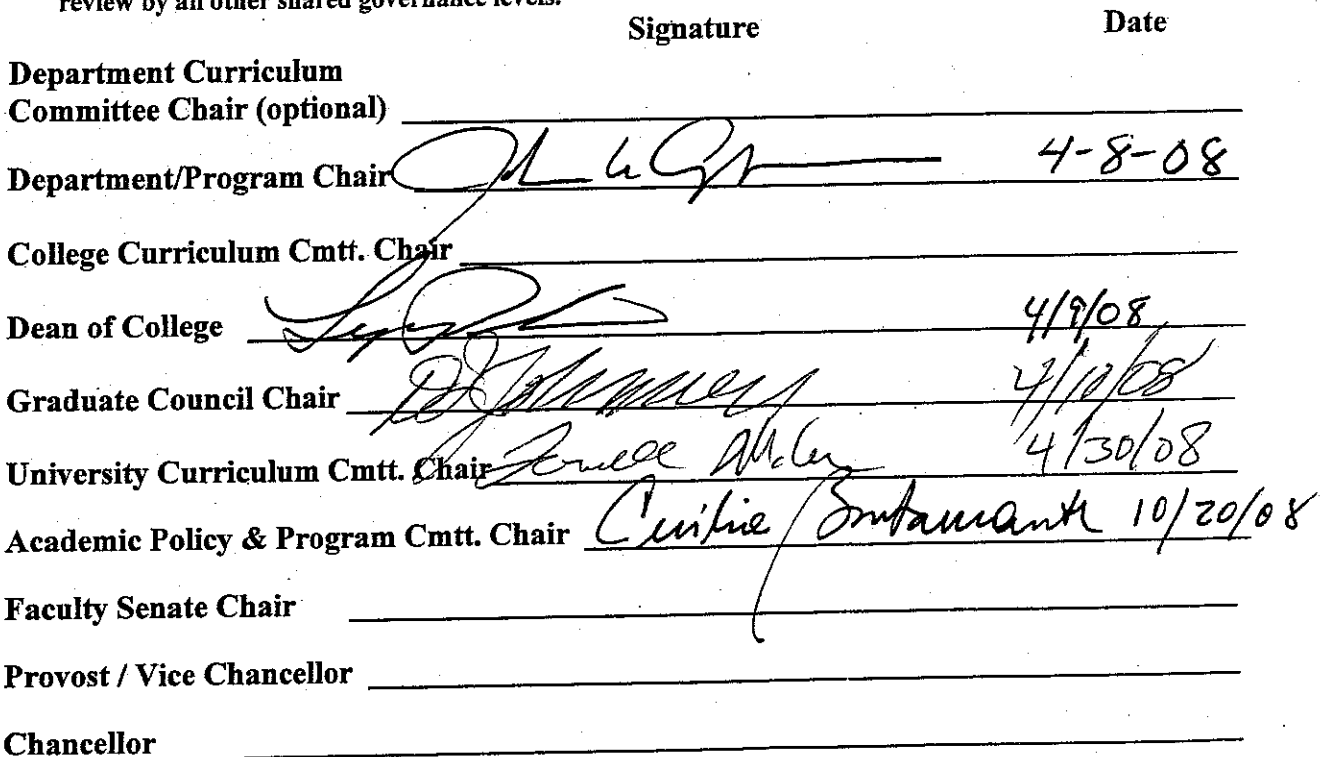 review by all other shared governance levels.
Signature Date
Department Curriculum
Committee Chair (optional)
Department/Program Chair 4-8-08
College Curriculum Cmtt. Chair
Dean of College 4/9/08
Graduate Council Chair 4/10/08
University Curriculum Cmtt. Chair 4/30/08
Academic Policy & Program Cmtt. Chair 10/20/08
Faculty Senate Chair
Provost / Vice Chancellor
Chancellor